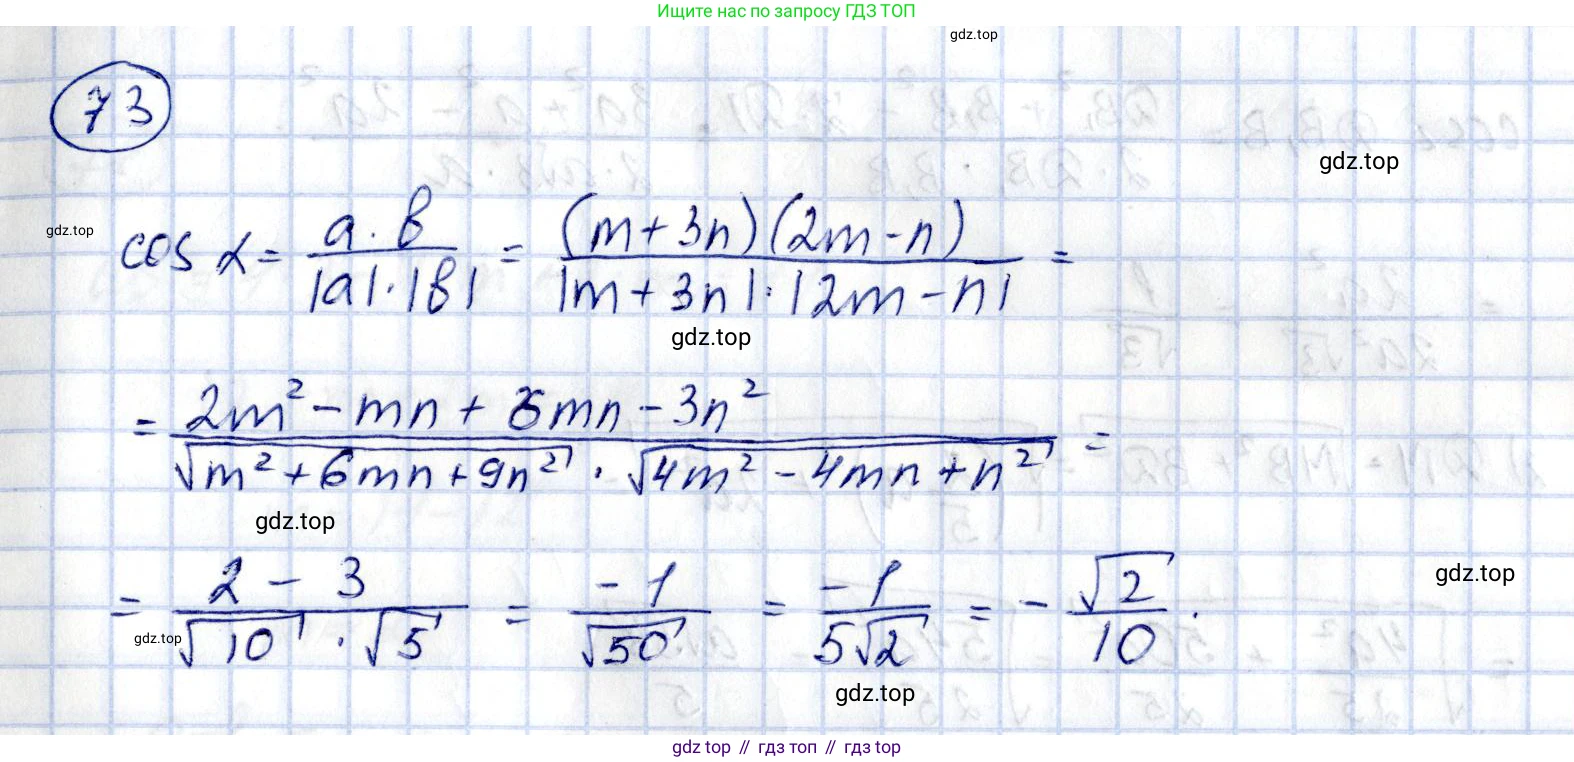 Ищите нас по запросу ГДЗ ТОП
gdz.top
73
gdz.top
gdz.top
cos α = a · b / |a| · |b| = (m + 3n)(2m - n) / |m + 3n| · |2m - n| =
gdz.top
= 2m² - mn + 6mn - 3n² / √m² + 6mn + 9n² · √4m² - 4mn + n² =
gdz.top
gdz.top
= 2 - 3 / √10 · √5 = -1 / √50 = -1 / 5√2 = - √2 / 10 .
gdz.top
gdz.top
gdz top // гдз топ // гдз top